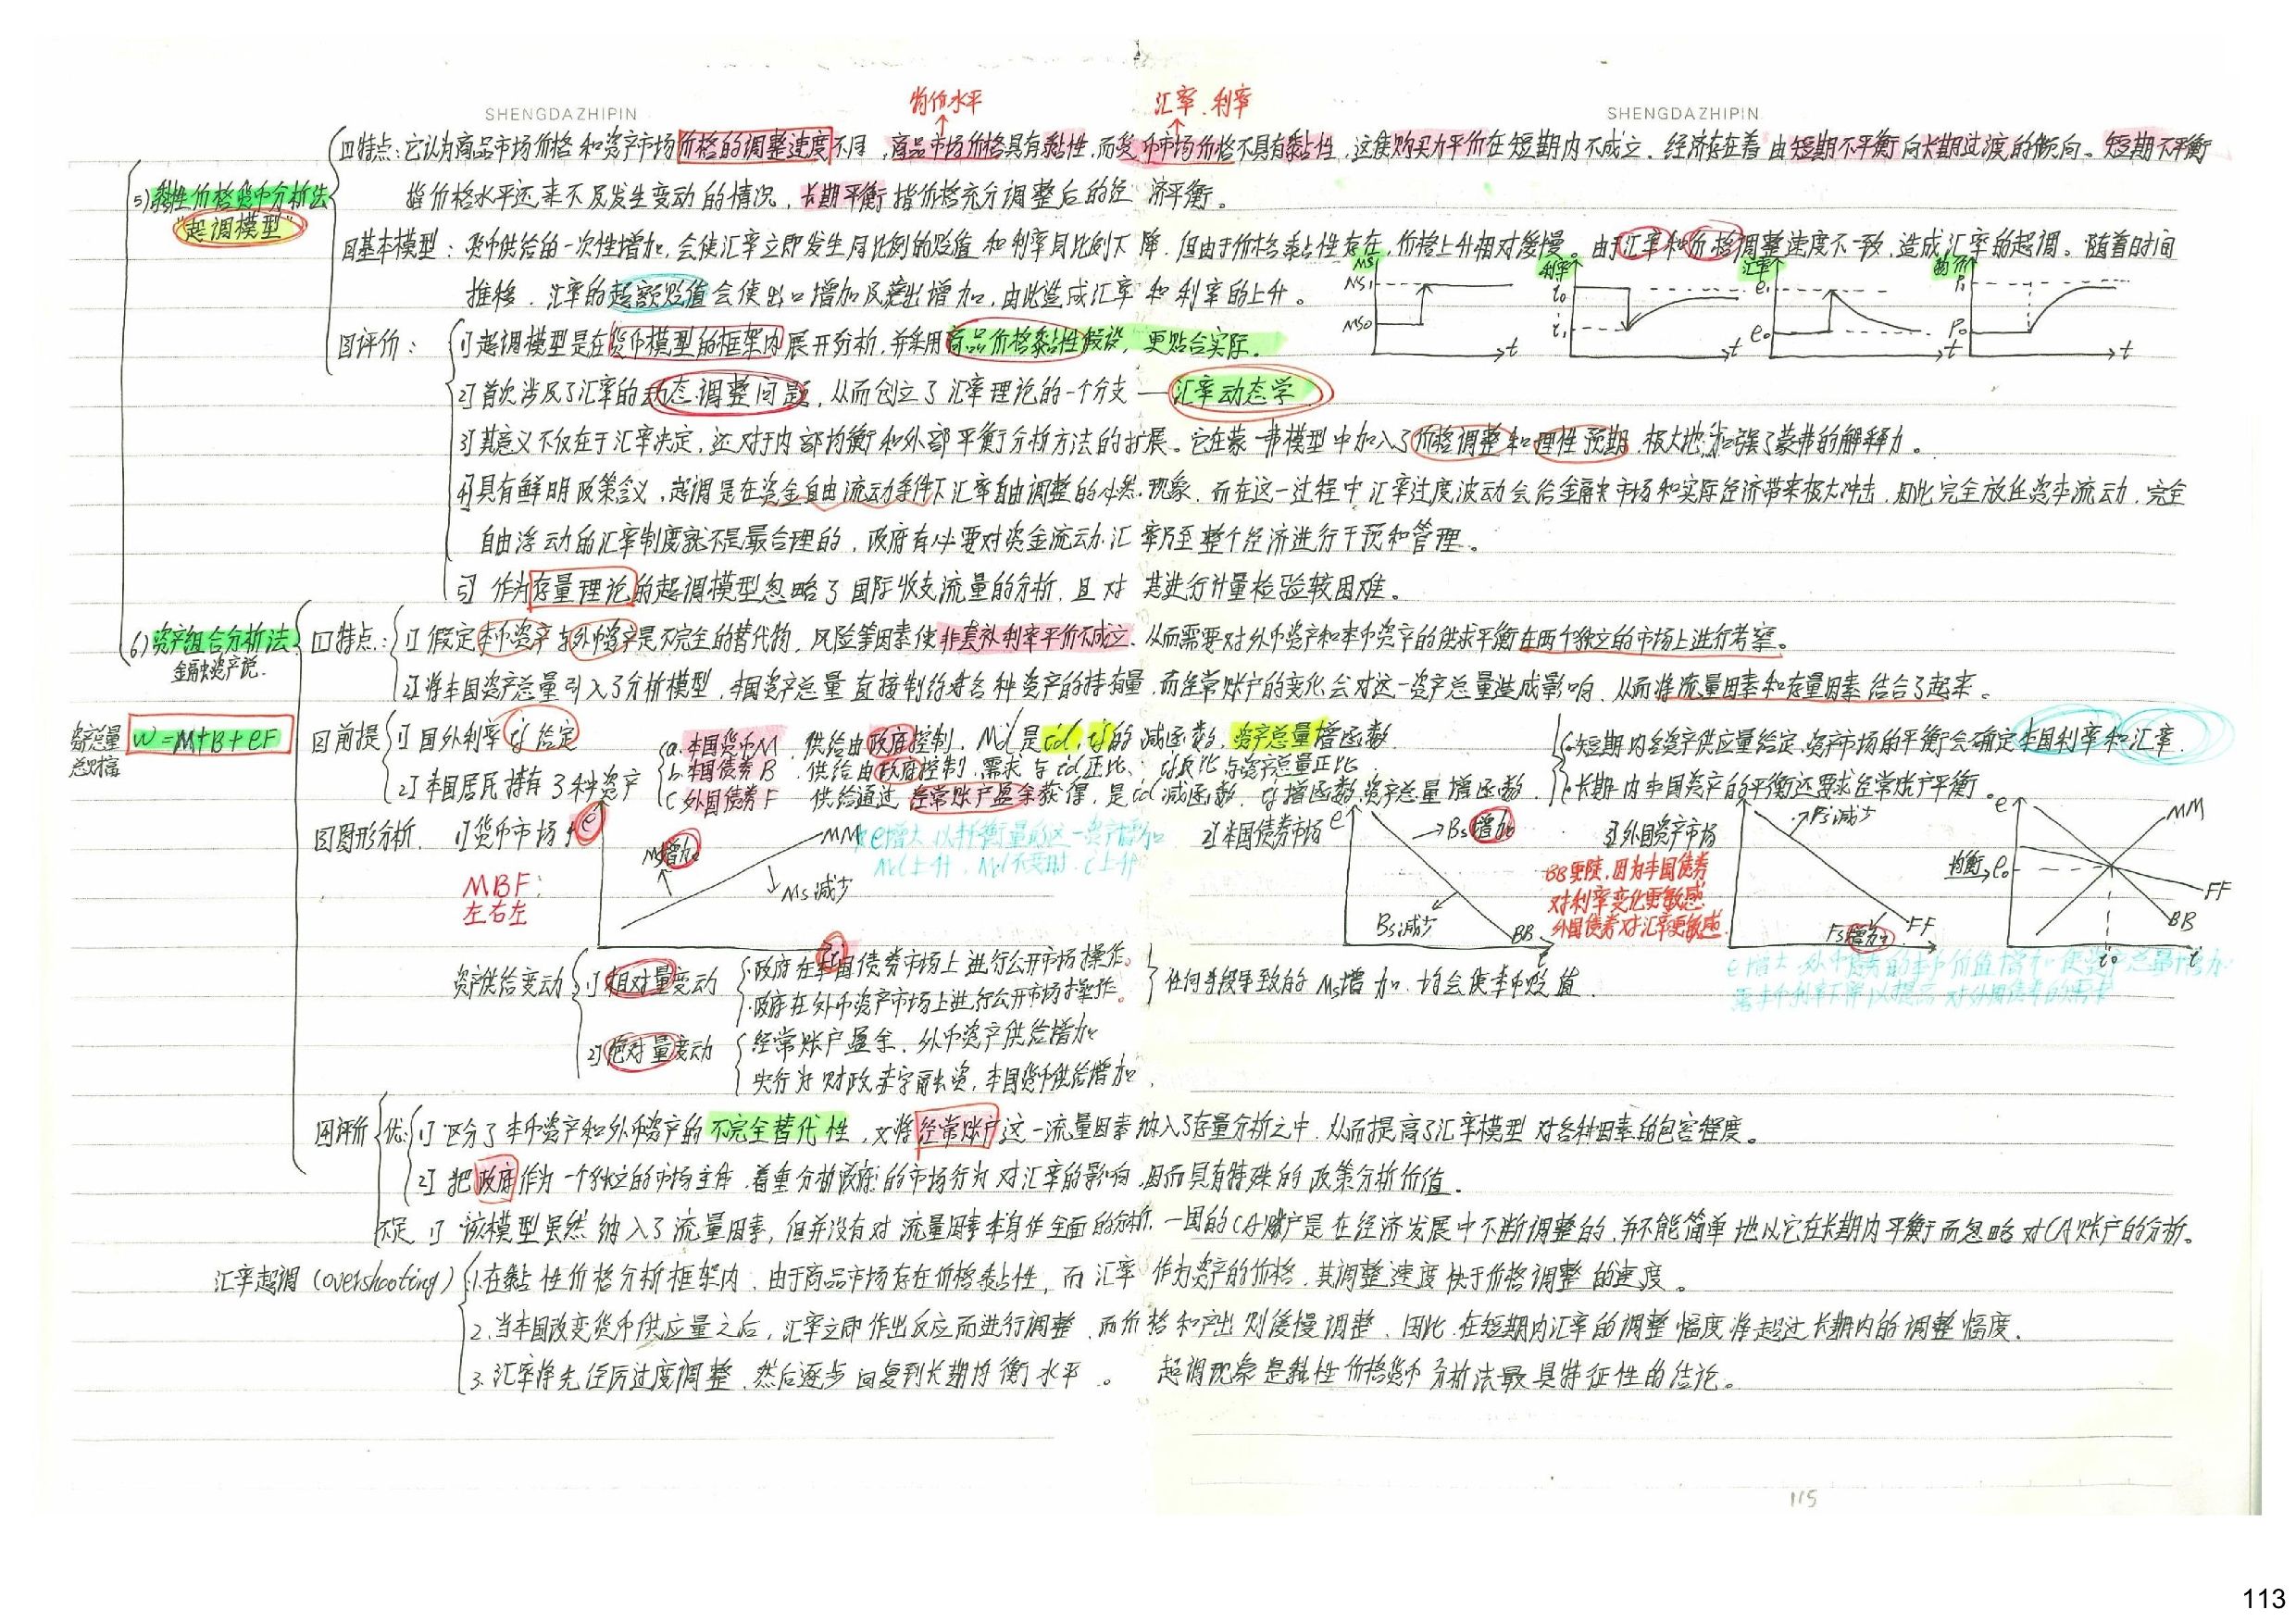 SHENGDAZHIPIN
SHENGDAZHIPIN
物价水平
汇率.利率
5)黏性价格货币分析法
"超调模型"
①特点:它认为商品市场价格和资产市场价格的调整速度不同,商品市场价格具有黏性,而货币市场价格不具有黏性,这使购买力平价在短期内不成立.经济存在着由短期不平衡向长期过渡的倾向。短期不平衡
指价格水平还来不及发生变动的情况,长期平衡指价格充分调整后的经济平衡。
②基本模型:货币供给的一次性增加,会使汇率立即发生同比例的贬值和利率同比例下降.但由于价格黏性存在,价格上升相对缓慢。由于汇率和价格调整速度不一致,造成汇率的超调。随着时间
推移.汇率的超额贬值会使出口增加及产出增加,由此造成汇率和利率的上升。
MS MS1 MS0 t
利率 t
汇率 e1 e0 t
物价 P1 P0 t
③评价:
1]超调模型是在货币模型的框架内展开分析,并采用商品价格黏性假设,更贴合实际.
2]首次涉及了汇率的动态调整问题,从而创立了汇率理论的一个分支—汇率动态学
3]其意义不仅在于汇率决定,还对于内部均衡和外部平衡分析方法的扩展。它在蒙-弗模型中加入了价格调整和理性预期.极大地加强了蒙弗的解释力。
4]具有鲜明政策含义,超调是在资金自由流动条件下汇率自由调整的必然现象.而在这一过程中汇率过度波动会给金融市场和实际经济带来极大冲击.因此完全放任资本流动.完全
自由浮动的汇率制度就不是最合理的,政府有必要对资金流动.汇率乃至整个经济进行干预和管理。
5]作为存量理论的超调模型忽略了国际收支流量的分析.且对其进行计量检验较困难。
6)资产组合分析法
金融资产说.
①特点:
1]假定本币资产与外币资产是不完全的替代物,风险等因素使非套补利率平价不成立.从而需要对外币资产和本币资产的供求平衡在两个独立的市场上进行考察。
2]将本国资产总量引入了分析模型,本国资产总量直接制约着各种资产的持有量.而经常账户的变化会对这一资产总量造成影响.从而将流量因素和存量因素结合了起来。
资产总量
总财富
W=M+B+eF
②前提
1]国外利率if给定
2]本国居民持有3种资产
a.本国货币M.供给由政府控制.Md是id,if的减函数,资产总量增函数
b.本国债券B.供给由政府控制,需求与id正比、if反比与资产总量正比
c.外国债券F 供给通过经常账户盈余获得,是id减函数,if增函数,资产总量增函数.
短期内各资产供应量给定.资产市场的平衡会确定本国利率和汇率.
长期内本国资产的平衡还要求经常账户平衡。
③图形分析.
1]货币市场
e
MBF:
左右左
Ms增加
MM
Ms减少
i
2]本国债券市场
e
Bs增加
Bs减少
BB
i
3]外国资产市场
BB更陡,因为本国债券
对利率变化更敏感
外国债券对汇率更敏感.
Fs减少
Fs增加
FF
e
均衡
e0
MM
FF
BB
i0
i
资产供给变动
1]相对量变动
·政府在本国债券市场上进行公开市场操作。
·政府在外币资产市场上进行公开市场操作。
任何手段导致的Ms增加.均会使本币贬值.
2]绝对量变动
经常账户盈余.外币资产供给增加
央行为财政赤字融资,本国货币供给增加.
④评价
优:1]区分了本币资产和外币资产的不完全替代性,又将经常账户这一流量因素纳入了存量分析之中.从而提高了汇率模型对各种因素的包容程度。
2]把政府作为一个独立的市场主体.着重分析政府的市场行为对汇率的影响.因而具有特殊的政策分析价值.
不足 1]该模型虽然纳入了流量因素,但并没有对流量因素本身作全面的分析.一国的CA账户是在经济发展中不断调整的.并不能简单地以它在长期内平衡而忽略对CA账户的分析。
汇率超调(overshooting)
1.在黏性价格分析框架内.由于商品市场存在价格黏性,而汇率作为资产的价格.其调整速度快于价格调整的速度。
2.当本国改变货币供应量之后,汇率立即作出反应而进行调整.而价格和产出则缓慢调整.因此.在短期内汇率的调整幅度将超过长期内的调整幅度.
3.汇率将先经历过度调整.然后逐步回复到长期均衡水平。超调现象是黏性价格货币分析法最具特征性的结论。
115
113